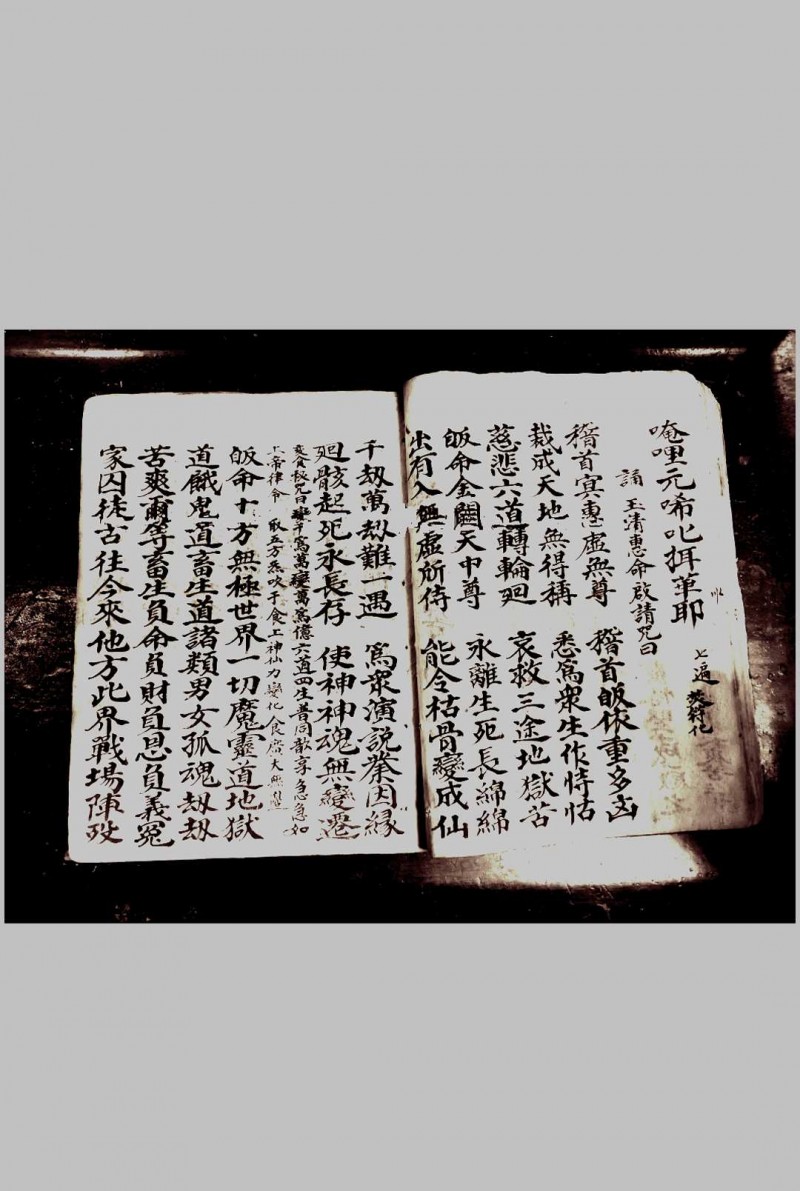 唵哩元唏叱揖華耶 七遍 焚符化
誦 玉清惠命啟請咒曰
稽首冥惠虛無尊 稽首皈依重多
裁成天地無得稱 悉為衆生作恃怙
慈悲六道轉輪廻 哀救三途地獄苦
皈命金闕天中尊 永離生死長綿綿
出有入無虛所侍 能令枯骨變成仙
千劫萬劫難一遇 寫衆演説蔡因緣
廻骸起死永長存 使神神魂無變遷
變食秘咒曰 萬變萬為億六道四生普同歆享急急如
上帝律令 取五方炁吹于食上神仙力變化食廣大無
皈命十方無極世界一切魔靈道地獄
道餓鬼道畜生道諸類男女孤魂劫劫
苦爽爾等畜生負命負財負恩負義冤
家囚徒古往今來他方此界戰場陣歿